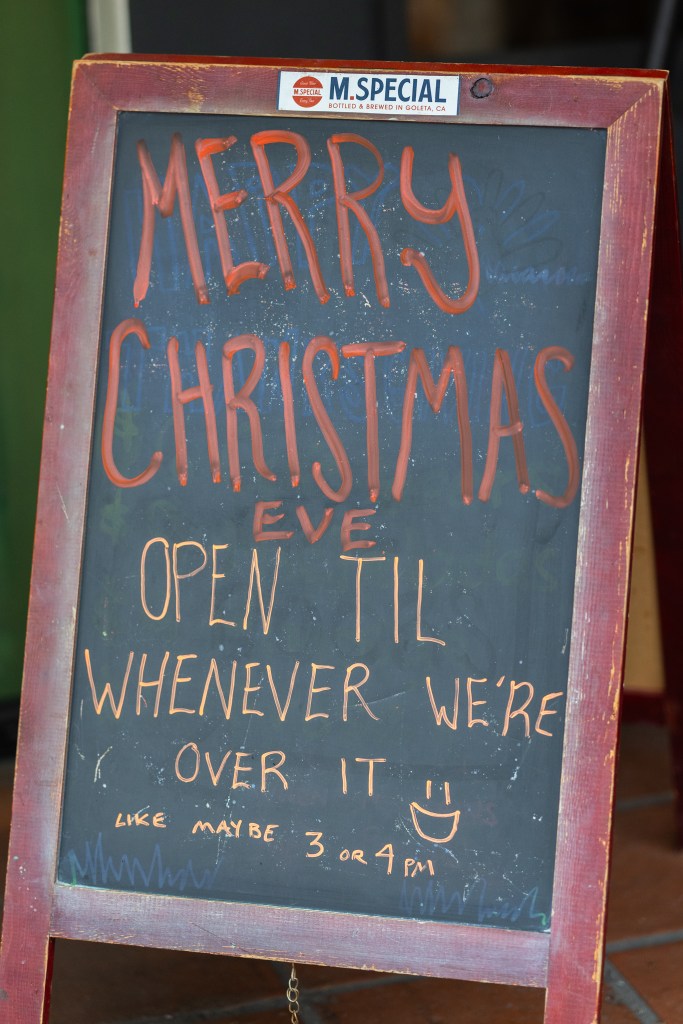 M.SPECIAL
M.SPECIAL
BOTTLED & BREWED IN GOLETA, CA
MERRY
CHRISTMAS
EVE
OPEN TIL
WHENEVER WE'RE
OVER IT
LIKE MAYBE 3 OR 4 PM